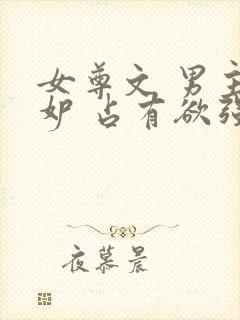 女尊文 男主
妒 占有欲强
夜慕晨